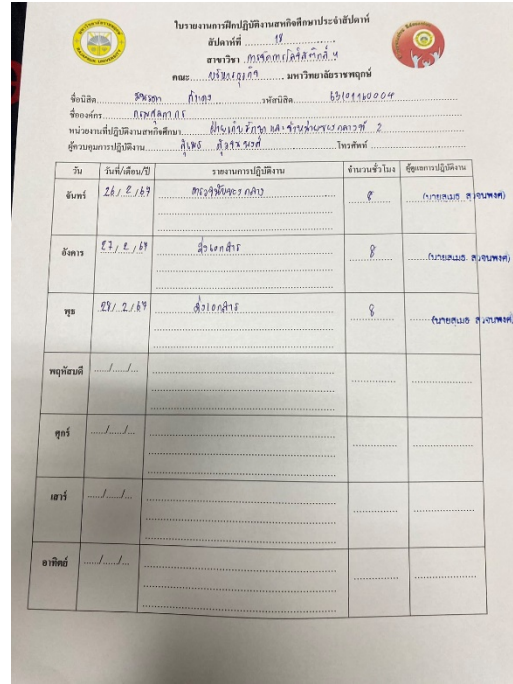 ใบรายงานการฝึกปฏิบัติงานสหกิจศึกษาประจำสัปดาห์
สัปดาห์ที่ 18
สาขาวิชา การจัดการโลจิสติกส์ ฯ
คณะ บริหารธุรกิจ มหาวิทยาลัยราชพฤกษ์
ชื่อนิสิต รหัสนิสิต 63101160004
ชื่อองค์กร กรมศุลกากร
หน่วยงานที่ปฏิบัติงานสหกิจศึกษา ฝ่ายเก็บรักษา และจำหน่ายของกลางที่ 2
ผู้ควบคุมการปฏิบัติงาน สุเมธ สุวจนพงศ์ โทรศัพท์
วัน วันที่/เดือน/ปี รายงานการปฏิบัติงาน จำนวนชั่วโมง ผู้ดูแลการปฏิบัติงาน
จันทร์ 26/2/67 ตรวจนับของกลาง 8 (นายสุเมธ สุวจนพงศ์)
อังคาร 27/2/67 ส่งเอกสาร 8 (นายสุเมธ สุวจนพงศ์)
พุธ 28/2/67 ส่งเอกสาร 8 (นายสุเมธ สุวจนพงศ์)
พฤหัสบดี ....../....../......
ศุกร์ ....../....../......
เสาร์ ....../....../......
อาทิตย์ ....../....../......